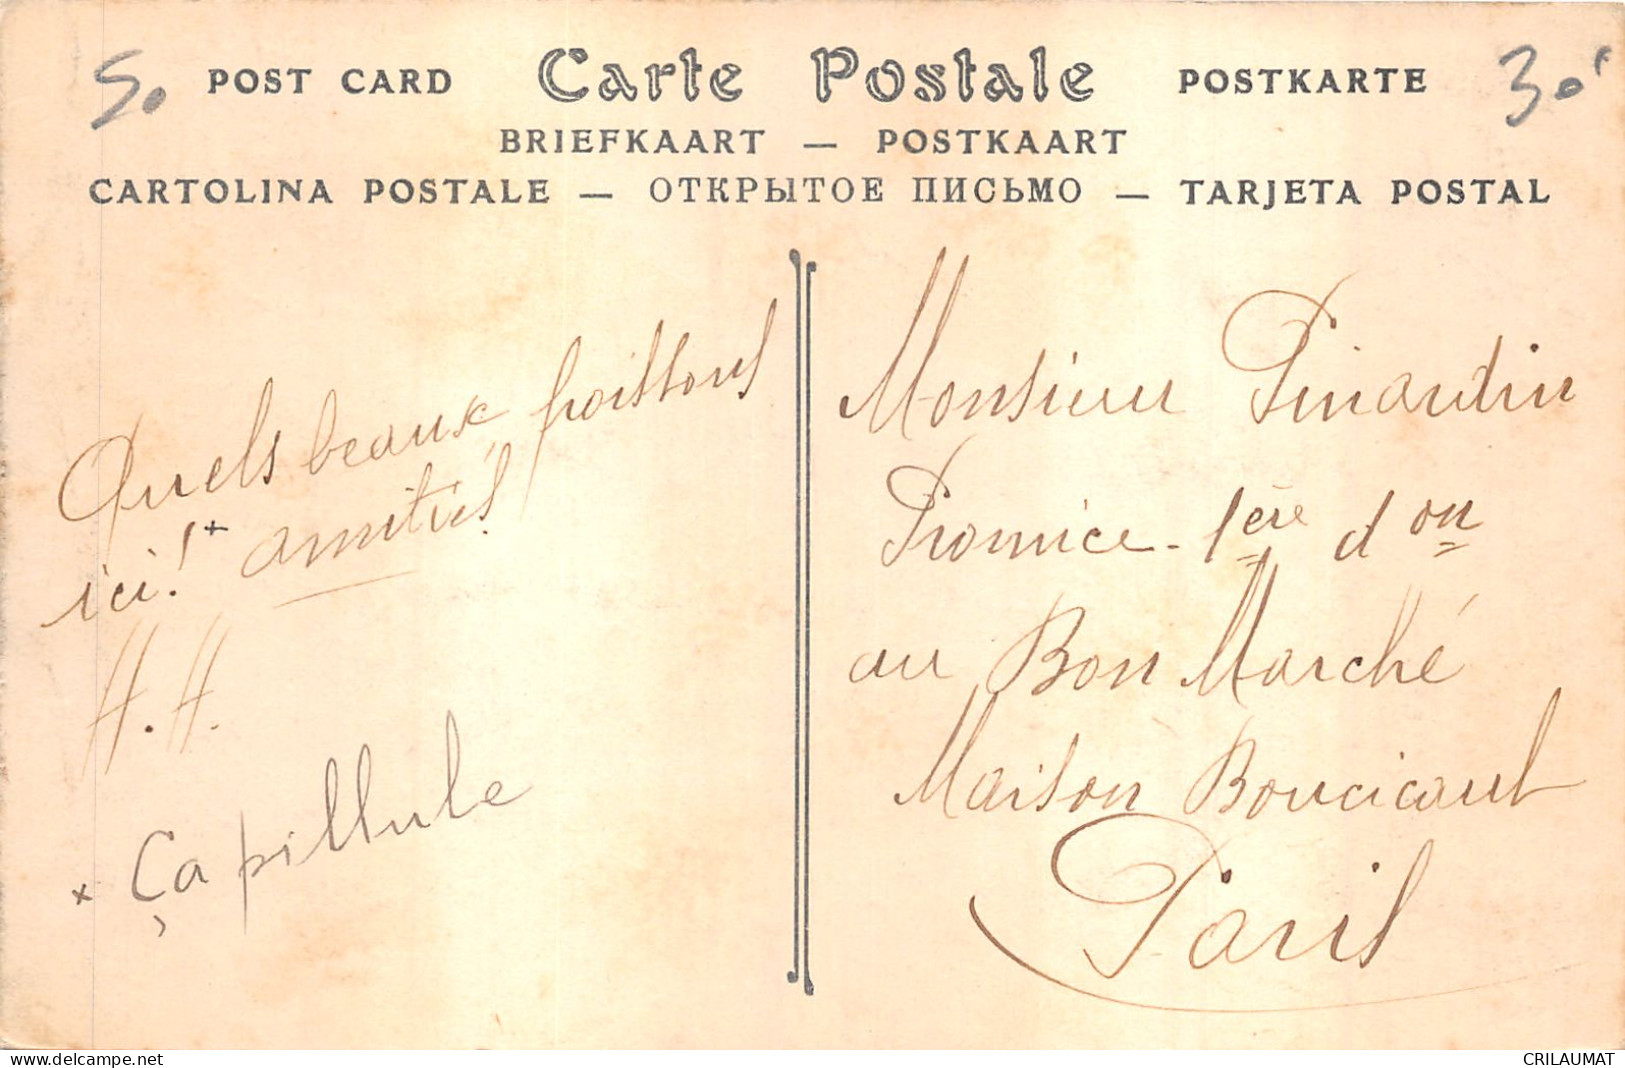 50 POST CARD Carte Postale POSTKARTE 30
BRIEFKAART — POSTKAART
CARTOLINA POSTALE — ОТКРЫТОЕ ПИСЬМО — TARJETA POSTAL
Quels beaux poissons
ici! + amitiés
H. H.
x Ça pillule
Monsieur Pinardin
Province - 1ère don
au Bon Marché
Maison Boucicaut
Paris
www.delcampe.net
CRILAUMAT